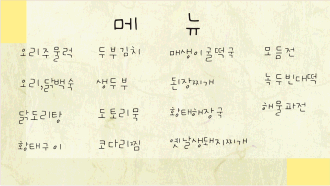 메 뉴
오리주물럭 두부김치 매생이굴떡국 모듬전
오리,닭백숙 생두부 된장찌개 녹두빈대떡
닭도리탕 도토리묵 황태해장국 해물파전
황태구이 코다리찜 옛날생돼지찌개